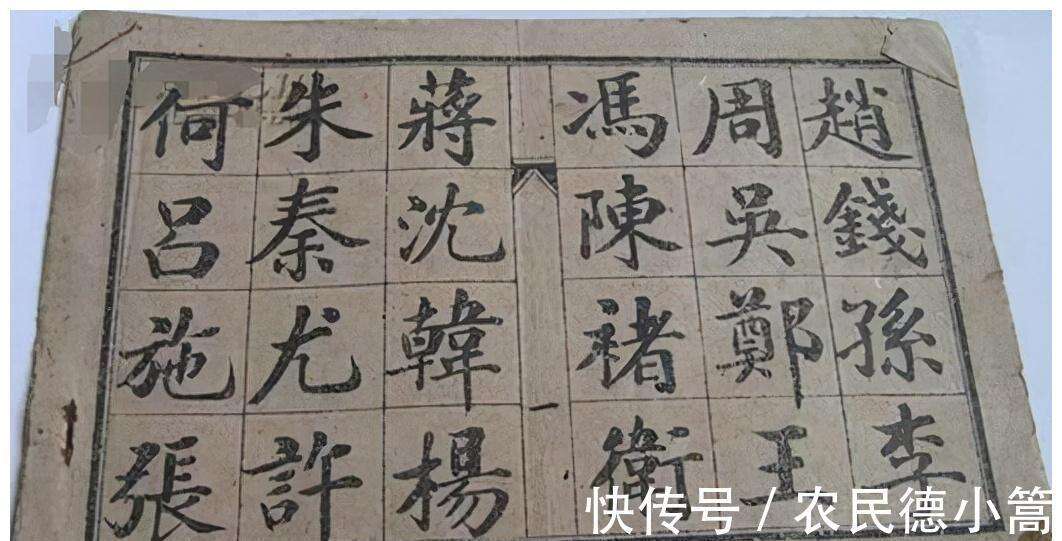 趙錢孫李
周吳鄭王
馮陳褚衛
一
蔣沈韓楊
朱秦尤許
何呂施張
快传号 / 农民德小篙